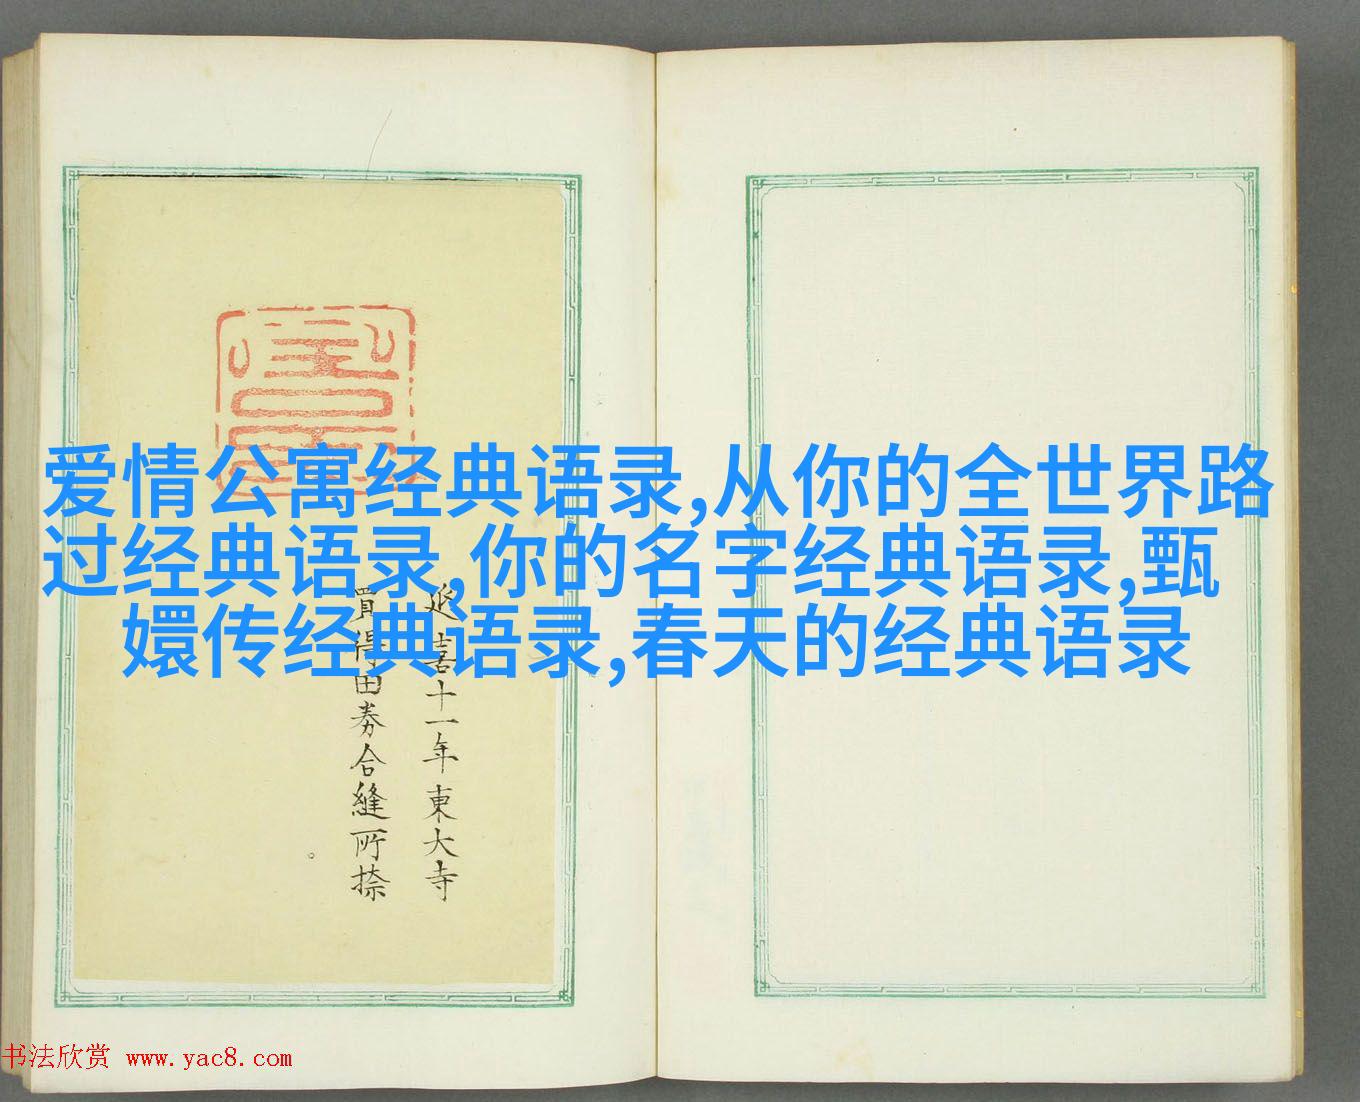 爱情公寓经典语录,从你的全世界路
过经典语录,你的名字经典语录,甄
嬛传经典语录,春天的经典语录
延喜十一年東大寺
買得田券合縫所捺
书法欣赏 www.yac8.com